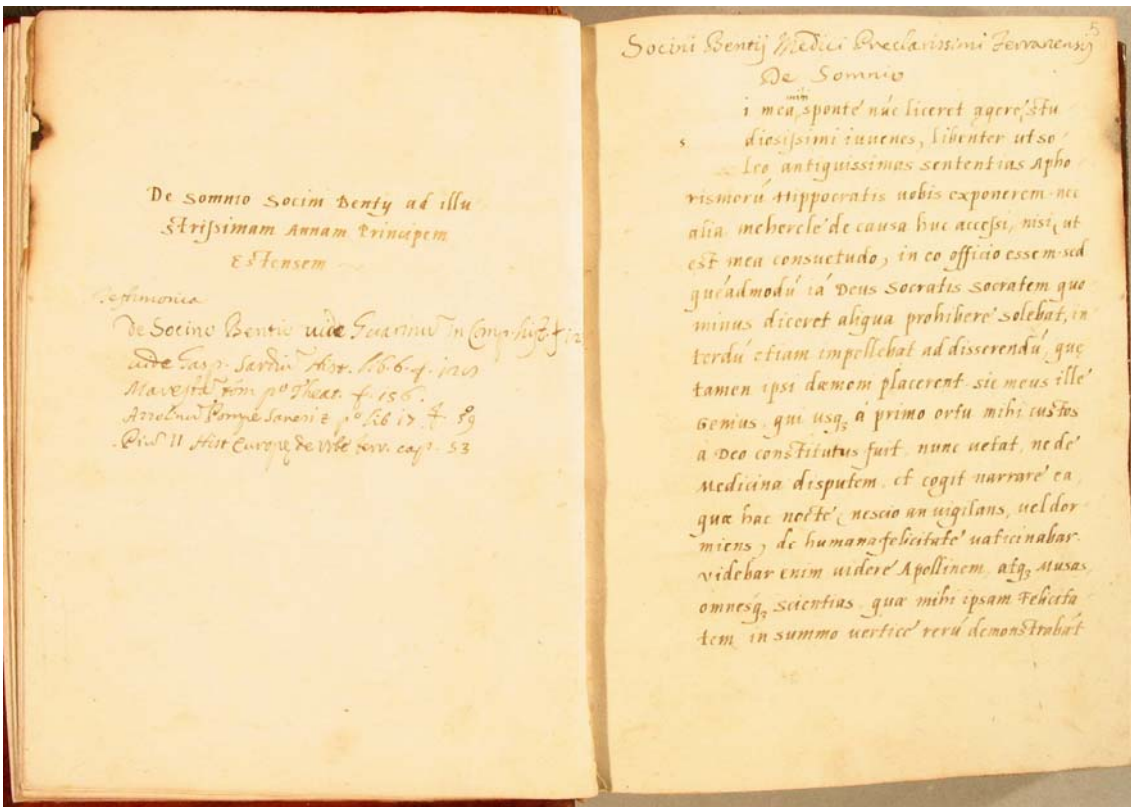 De Somnio Socini Bentÿ ad illu
strissimam Annam Principem
Estensem
Testimonia
De Socino Bentio vide Guarinũ in Comp. hist. f
vide Gasp. Sardiũ Hist. lib. 6. f.
Marestã tom pº Theat. f. 156.
Pompe pº lib 17 f. 59
Piũ II Hist Europę de Vrbe ferr. cap. 53
5
Socini Bentij Medici Preclarissimi Ferrariensis
De Somnio
i meã mihi sponte nũc liceret agere, stu
s diosissimi iuuenes, libenter ut so
leo antiquissimas sententias Apho
rismorũ Hippocratis uobis exponerem. nec
alia mehercle de causa huc accessi, nisi, ut
est mea consuetudo, in eo officio essem. sed
quẽadmodũ iã Deus Socratis Socratem quo
minus diceret aliqua prohibere solebat, in
terdũ etiam impellebat ad disserendũ, quę
tamen ipsi dæmoni placerent. sic meus ille
Genius, qui usq; à primo ortu mihi custos
à Deo constitutus fuit, nunc uetat, ne de
Medicina disputem, et cogit narrare ea,
quæ hac nocte, nescio an uigilans, uel dor
miens, de humana felicitate uaticinabar.
videbar enim uidere Apollinem, atq; Musas,
omnesq; scientias, quæ mihi ipsam Felicita
tem in summo uertice rerũ demonstrabãt